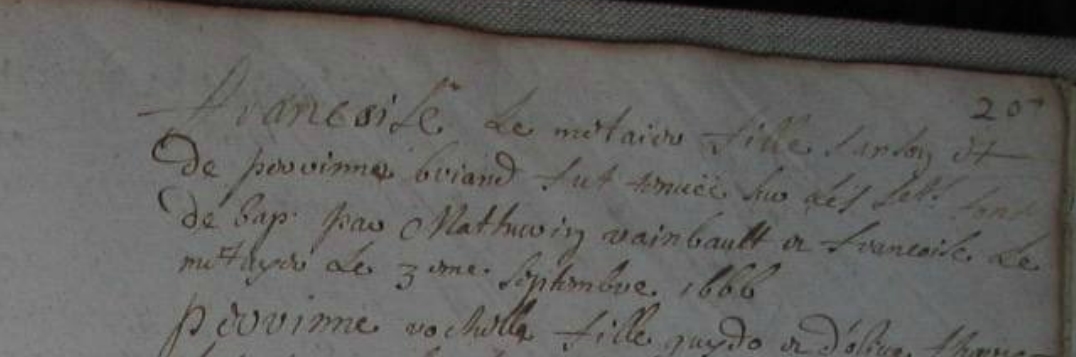 20
Francoise Le metaier fille Sanson et
de perrinne briand fut tenuee sur les st. fonds
de bap. par Mathurin rainbault et francoise Le
metayer Le 3 eme. Septembre 1666
perrinne rochelle fille guydo et d'olive